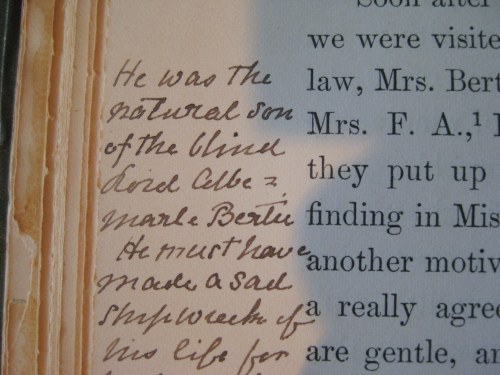 He was the
natural son
of the blind
Lord Albe=
marle Bertie
He must have
made a sad
shipwreck of
his life for
Soon after
we were visite
law, Mrs. Bert
Mrs. F. A.,¹
they put up
finding in Mis
another motiv
a really agree
are gentle, an